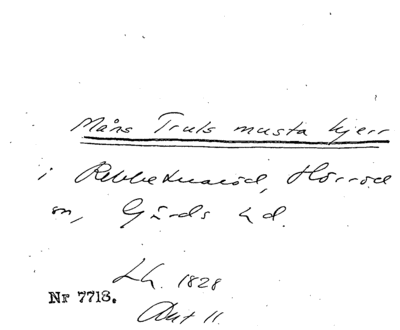 Måns Truls musta kjerr
i Rebbetuaröd, Hörröd
sn, Gärds hd.
Lh. 1828
Nr 7713.
Ant 11.